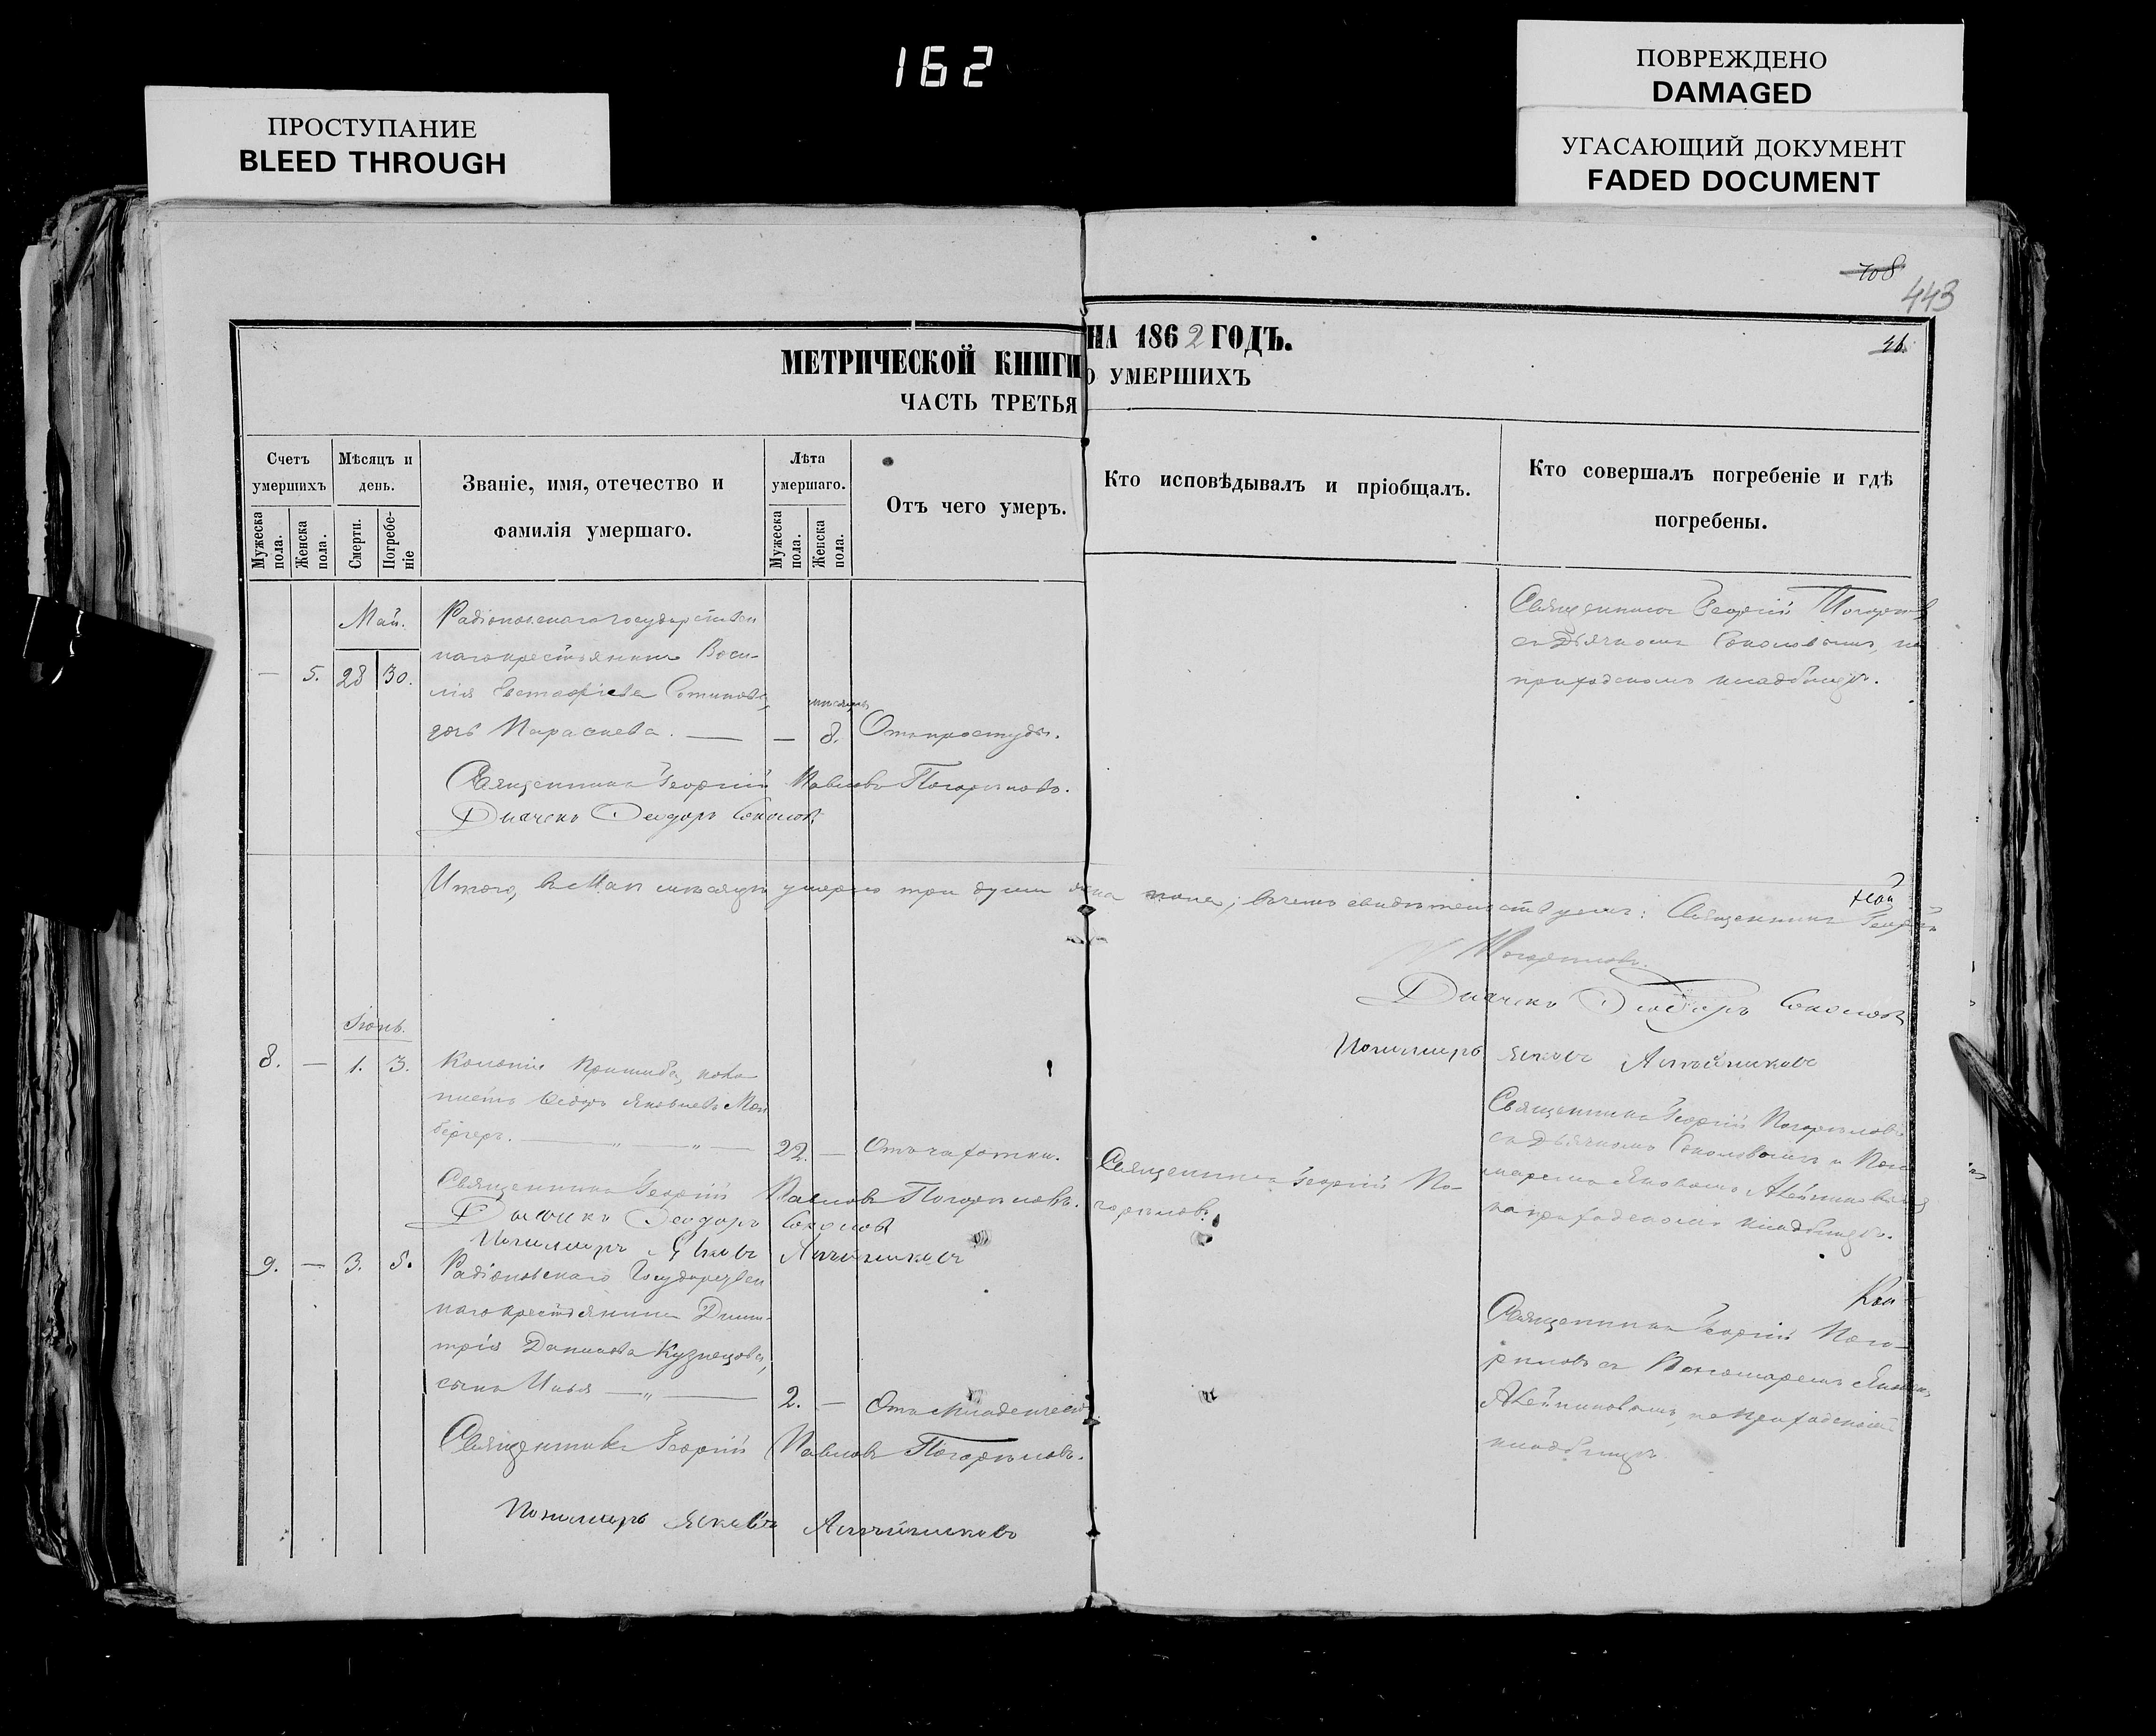 162
ПРОСТУПАНИЕ
BLEED THROUGH
ПОВРЕЖДЕНО
DAMAGED
УГАСАЮЩИЙ ДОКУМЕНТ
FADED DOCUMENT
708
443
46.
МЕТРИЧЕСКОЙ КНИГИ НА 1862 ГОДЪ.
ЧАСТЬ ТРЕТЬЯ О УМЕРШИХЪ
Счетъ умершихъ
Мужеска пола.
Женска пола.
Мѣсяцъ и день.
Смерти.
Погребеніе
Званіе, имя, отечество и фамилія умершаго.
Лѣта умершаго.
Мужеска пола.
Женска пола.
Отъ чего умеръ.
Кто исповѣдывалъ и пріобщалъ.
Кто совершалъ погребеніе и гдѣ погребены.
Май.
— 5. 28 30.
Радіоновскаго государствен
наго крестьянина Васи-
лія Евстафіева
дочь Параскева. — — 8. Отъ простуды.
Священникъ Георгій
съ Дьячкомъ Соколовымъ, на
приходскомъ кладбищѣ.
Священникъ Георгій Павловъ Погорѣловъ.
Дьячекъ Ѳеодоръ Соколовъ
Итого, въ Маѣ мѣсяцѣ умерло три души пола; въ чемъ свидѣтельствуемъ: Священникъ Георгій
Погорѣловъ.
Дьячекъ Ѳеодоръ Соколовъ
Пономарь Яковъ
Іюнь.
8. — 1. 3.
Колоніи Пришиба, коло
нистъ Яковлевъ
бергеръ. — 22. — Отъ чахотки.
Священникъ Георгій По-
горѣловъ.
Священникъ Георгій Погорѣловъ
съ Дьячкомъ Соколовымъ и Поно
маремъ Яковомъ
на приходскомъ кладбищѣ.
Священникъ Георгій Павловъ Погорѣловъ.
Дьячекъ Ѳеодоръ Соколовъ
Пономарь Яковъ
9. — 3. 5.
Радіоновскаго Государствен
наго крестьянина Дими-
трія Данилова Кузнецова,
сынъ Илья — 2. — Отъ младенческой
Священникъ Георгій Пого-
рѣловъ съ Пономаремъ Яковомъ
на приходскомъ
кладбищѣ
Священникъ Георгій Павловъ Погорѣловъ.
Пономарь Яковъ